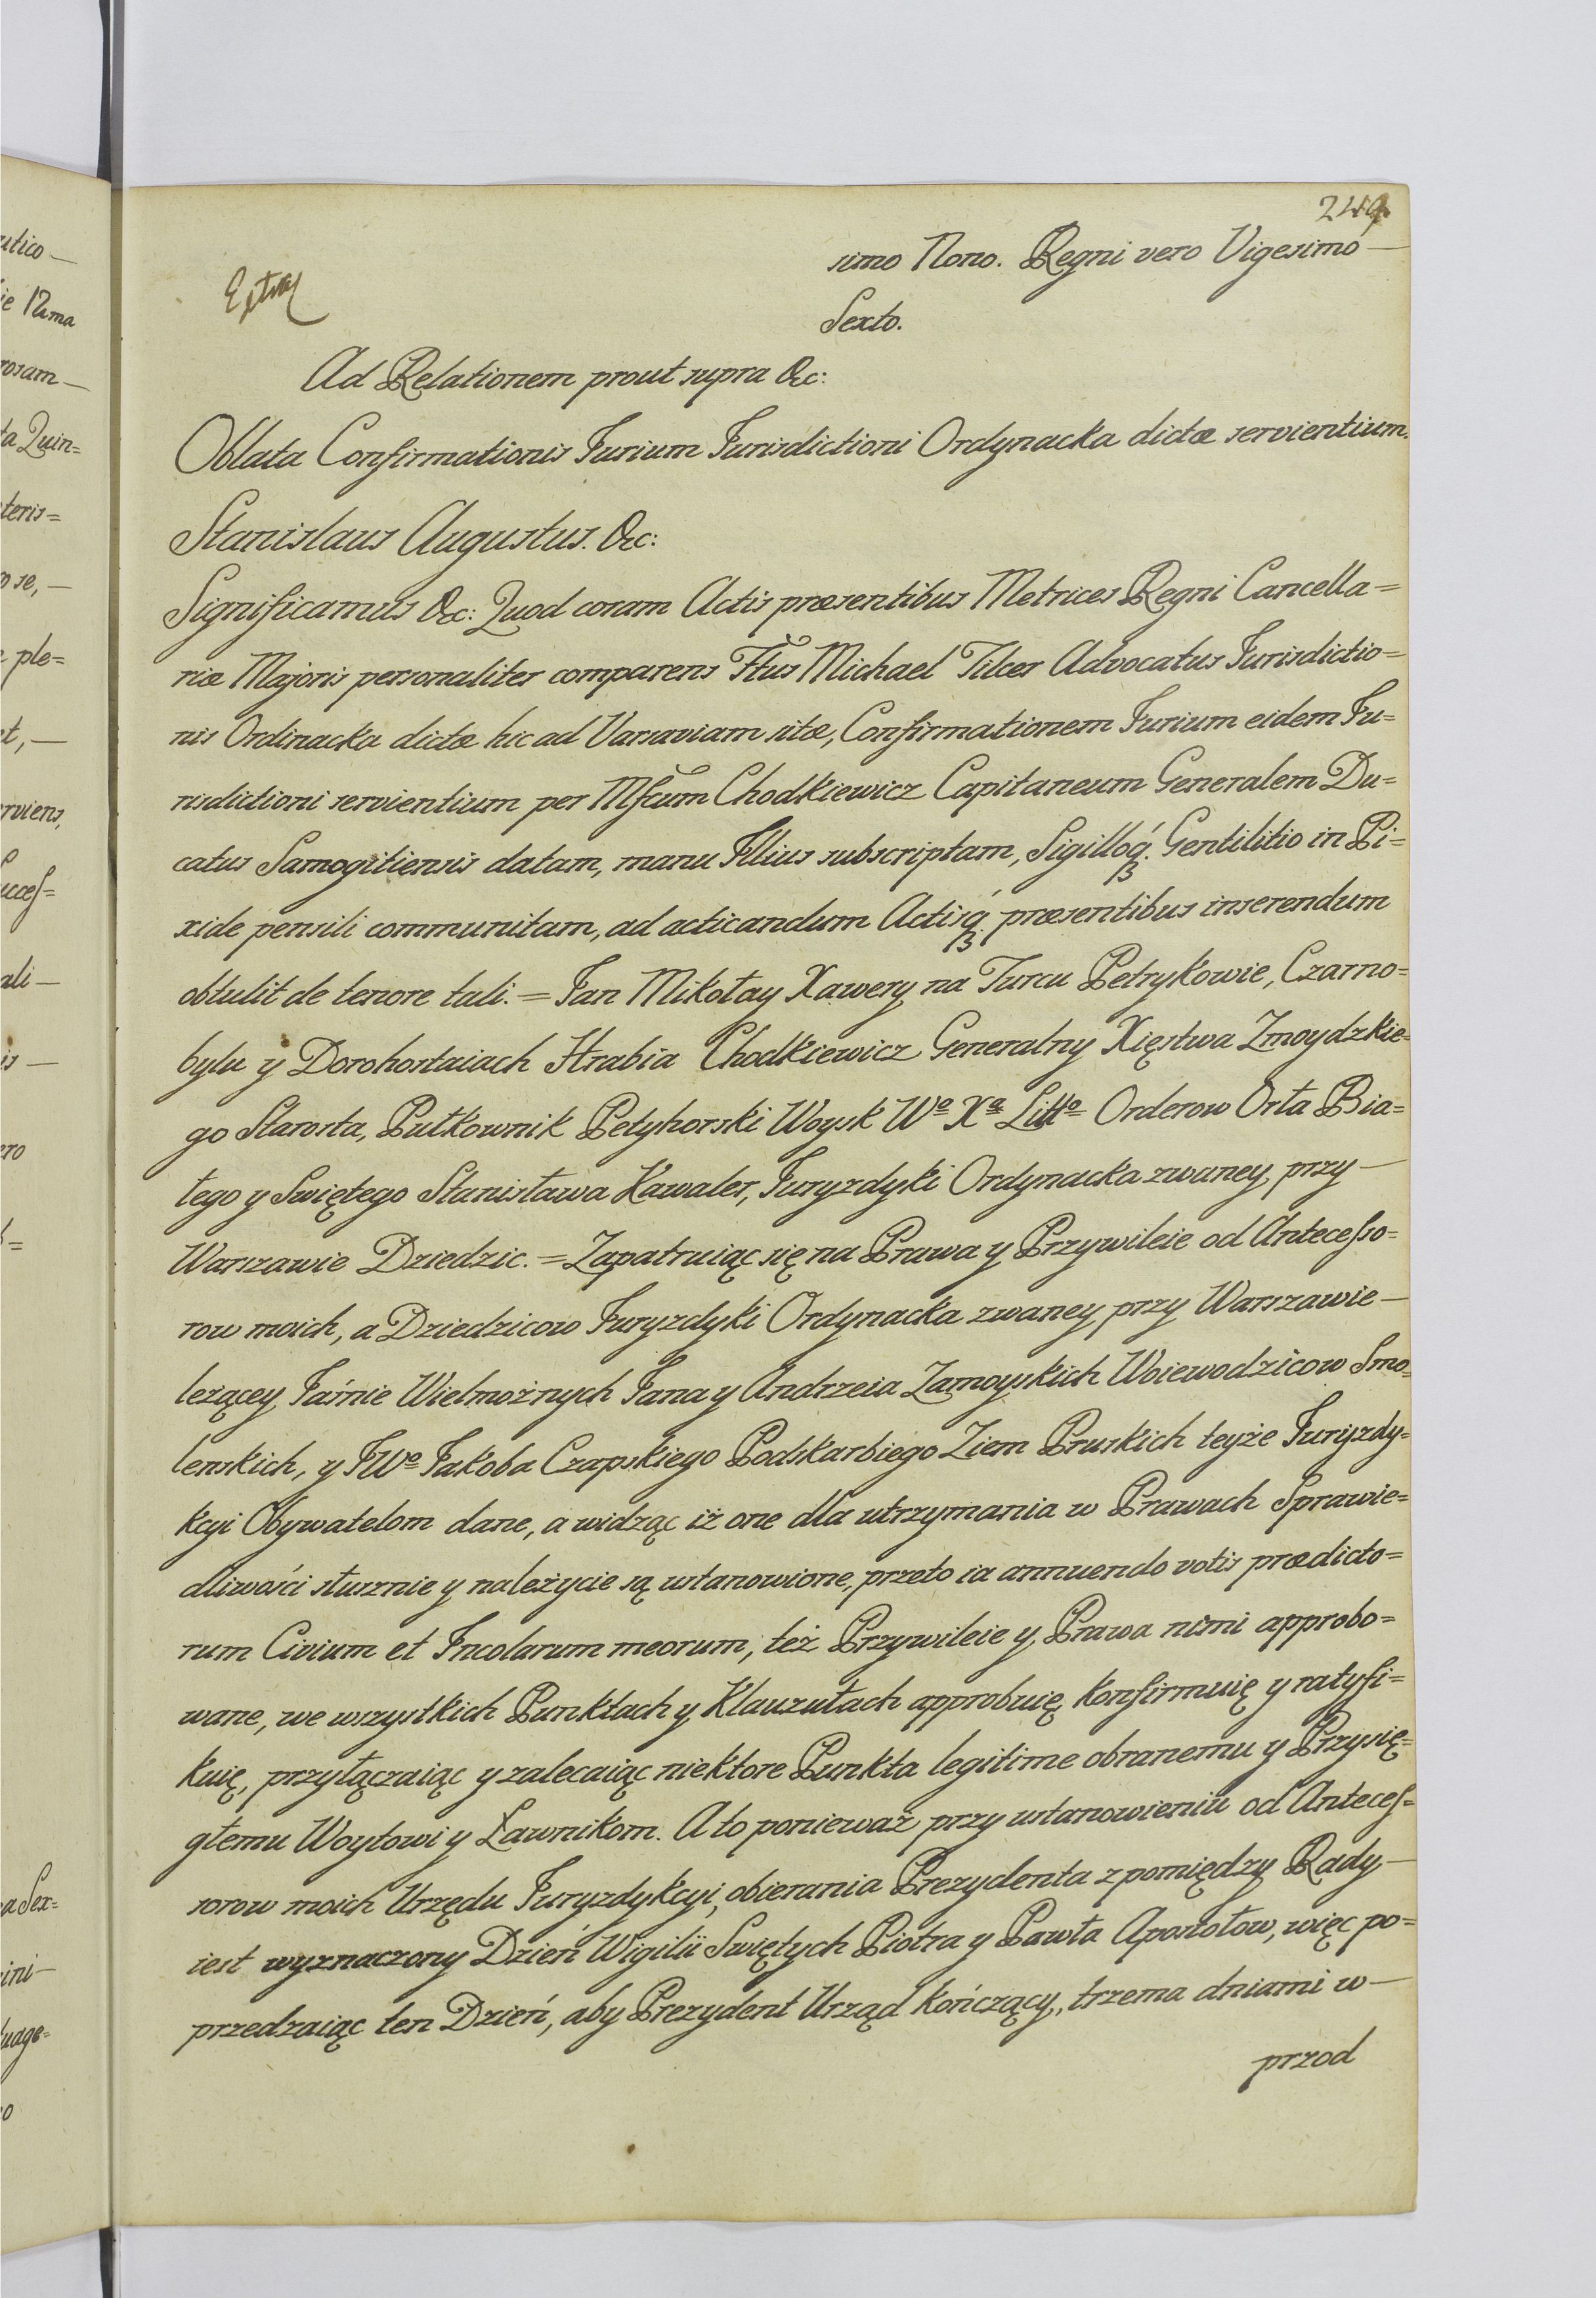 249
simo Nono. Regni vero Vigesimo —
Extra
Sexto.
Ad Relationem prout supra &c:
Oblata Confirmationis Jurium Jurisdictioni Ordynacka dictæ servientium.
Stanislaus Augustus. &c:
Significamus &c: Quod coram Actis præsentibus Metrices Regni Cancella=
riæ Majoris personaliter comparens Ftus Michael Tilcer Advocatus Jurisdictio=
nis Ordinacka dictæ hic ad Varsaviam sitæ, Confirmationem Jurium eidem Ju=
risdictioni servientium per Mfcum Chodkiewicz Capitaneum Generalem Du=
catus Samogitiensis datam, manu Illius subscriptam, Sigilloq́ꝫ. Gentilitio in Pi=
xide pensili communitam, ad acticandum Actisq́ꝫ. præsentibus inserendum
obtulit de tenore tali. = Jan Mikołay Xawery na Turcu Petrykowie, Czarno=
bylu y Dorohostaiach Hrabia Chodkiewicz Generalny Xięstwa Zmoydzkie=
go Starosta, Pułkownik Petyhorski Woysk Wº Xª Littº Orderow Orła Bia=
łego y Swiętego Stanisława Kawaler, Juryzdyki Ordynacka zwaney, przy —
Warszawie Dziedzic. = Zapatruiąc się na Prawa y Przywileie od Antecesso=
row moich, a Dziedzicow Juryzdyki Ordynacka zwaney, przy Warszawie —
leżącey, Jaśnie Wielmożnych Jana y Andrzeia Zamoyskich Woiewodzicow Smo=
lenskich, y JWº Jakoba Czapskiego Podskarbiego Ziem Pruskich teyże Juryzdy=
kcyi Obywatelom dane, a widząc iż one dla utrzymania w Prawach Sprawie=
dliwości słusznie y należycie są ustanowione, przeto ia annuendo votis prædicto=
rum Civium et Incolarum meorum, też Przywileie y Prawa nimi approbo=
wane, we wszystkich Punktach y Klauzułach approbuię, konfirmuię y ratyfi=
kuię, przyłączaiąc y zalecaiąc niektore Punkta legitime obranemu y Przysię=
głemu Woytowi y Ławnikom. A to ponieważ przy ustanowieniu od Anteces=
sorow moich Urzędu Juryzdykcyi, obierania Prezydenta z pomiędzy Rady —
iest wyznaczony Dzień Wigilii Swiętych Piotra y Pawła Apostołow, więc po=
przedzaiąc ten Dzień, aby Prezydent Urząd kończący, trzema dniami w —
przod